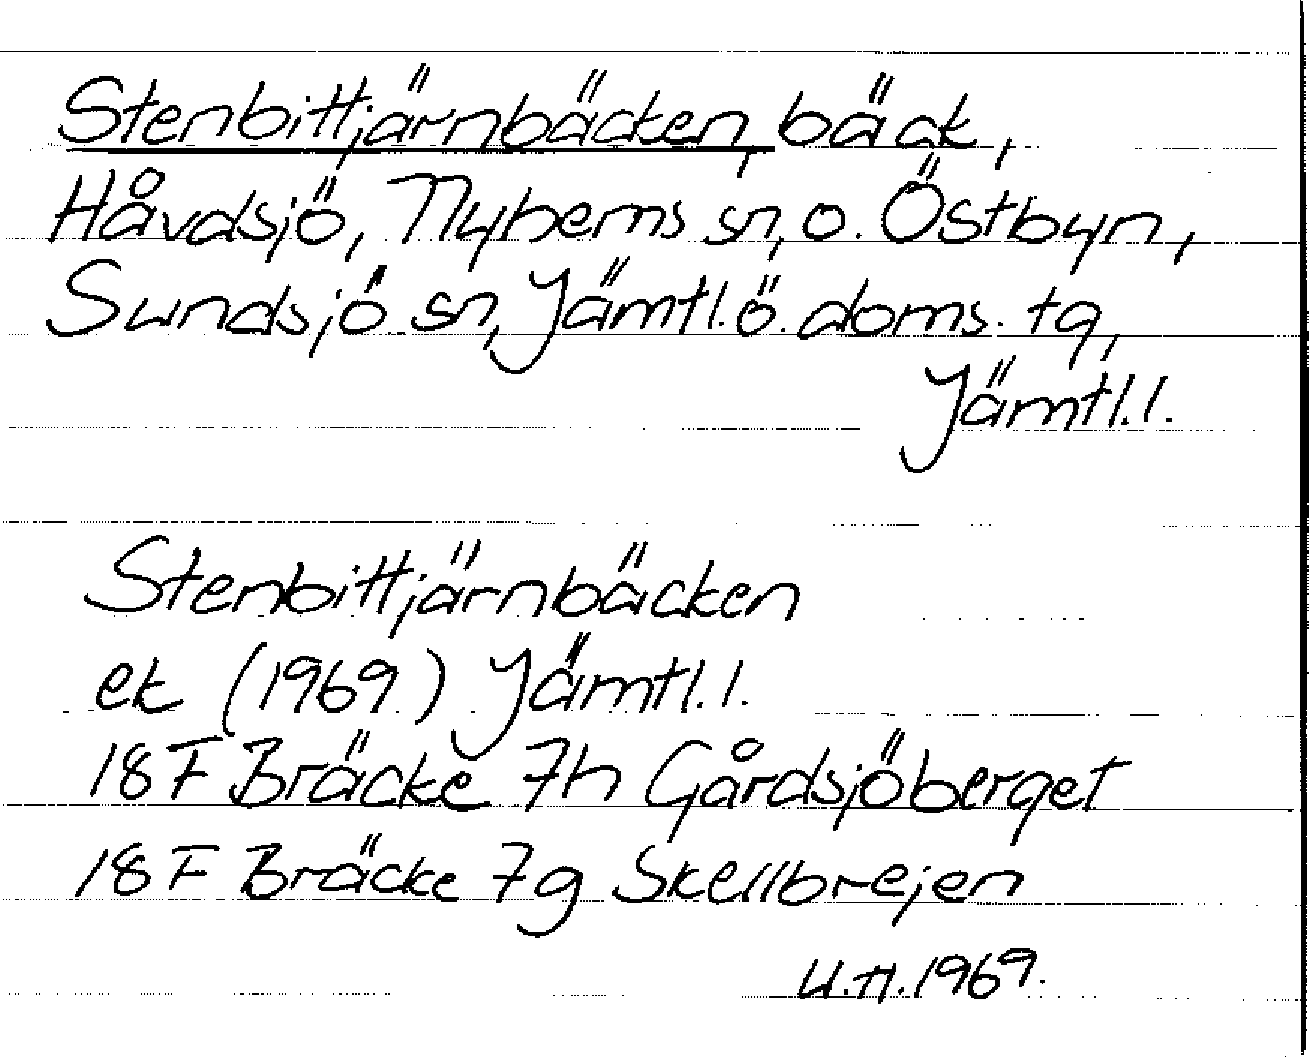 Stenbittjärnbäcken, bäck,
Håvdsjö, Nyhems sn, o. Östbyn,
Sundsjö sn, Jämtl. ö. doms. tg,
Jämtl. l.
Stenbittjärnbäcken
ek (1969) Jämtl. l.
18 F Bräcke 7h Gårdsjöberget
18 F Bräcke 7g Skellbrejen
U.H. 1969.